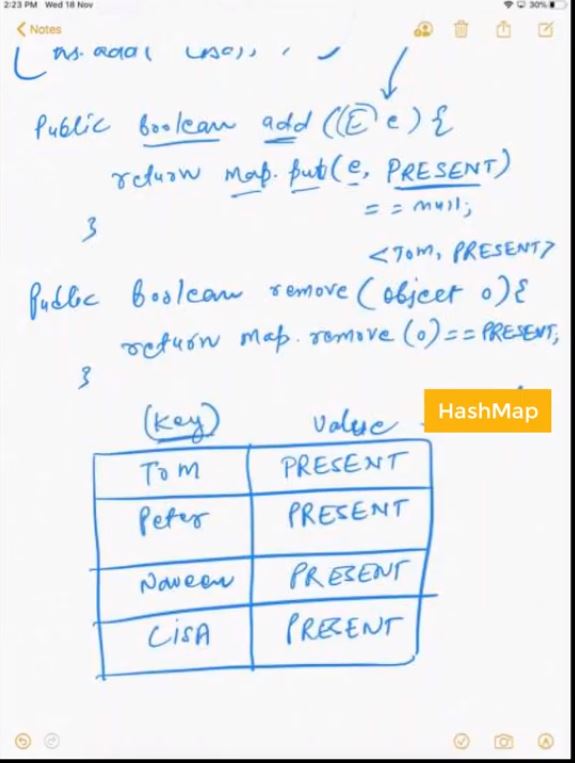 2:23 PM Wed 18 Nov
30%
Notes
Public boolean add ((E) e) {
return map.put(e, PRESENT)
== null;
}
<Tom, PRESENT>
Public Boolean remove (object o) {
return map.remove (o) == PRESENT;
}
(Key) Value
HashMap
Tom PRESENT
Peter PRESENT
Naveen PRESENT
LISA PRESENT